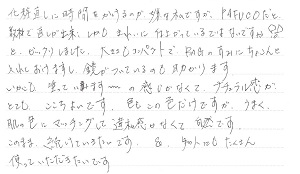 化粧直しに時間をかけるのが嫌なんですが、PAFUCOだと
簡単で直しが出来、しかも きれいに 仕上がっているではないですか
と、ビックリしました。大きさもコンパクトで BAGのすみにちょこんと
入れておけますし、鏡がついているのも助かります
いかにも 塗って ます〜 の感じがなくて、ナチュラル感が
とても ここちよいです。色もこの色だけですが、うまく
肌の色に マッチングして違和感はなくて 自然です。
このまま、続けていきたいです。 &、知人にもたくさん
使っていただきたいです